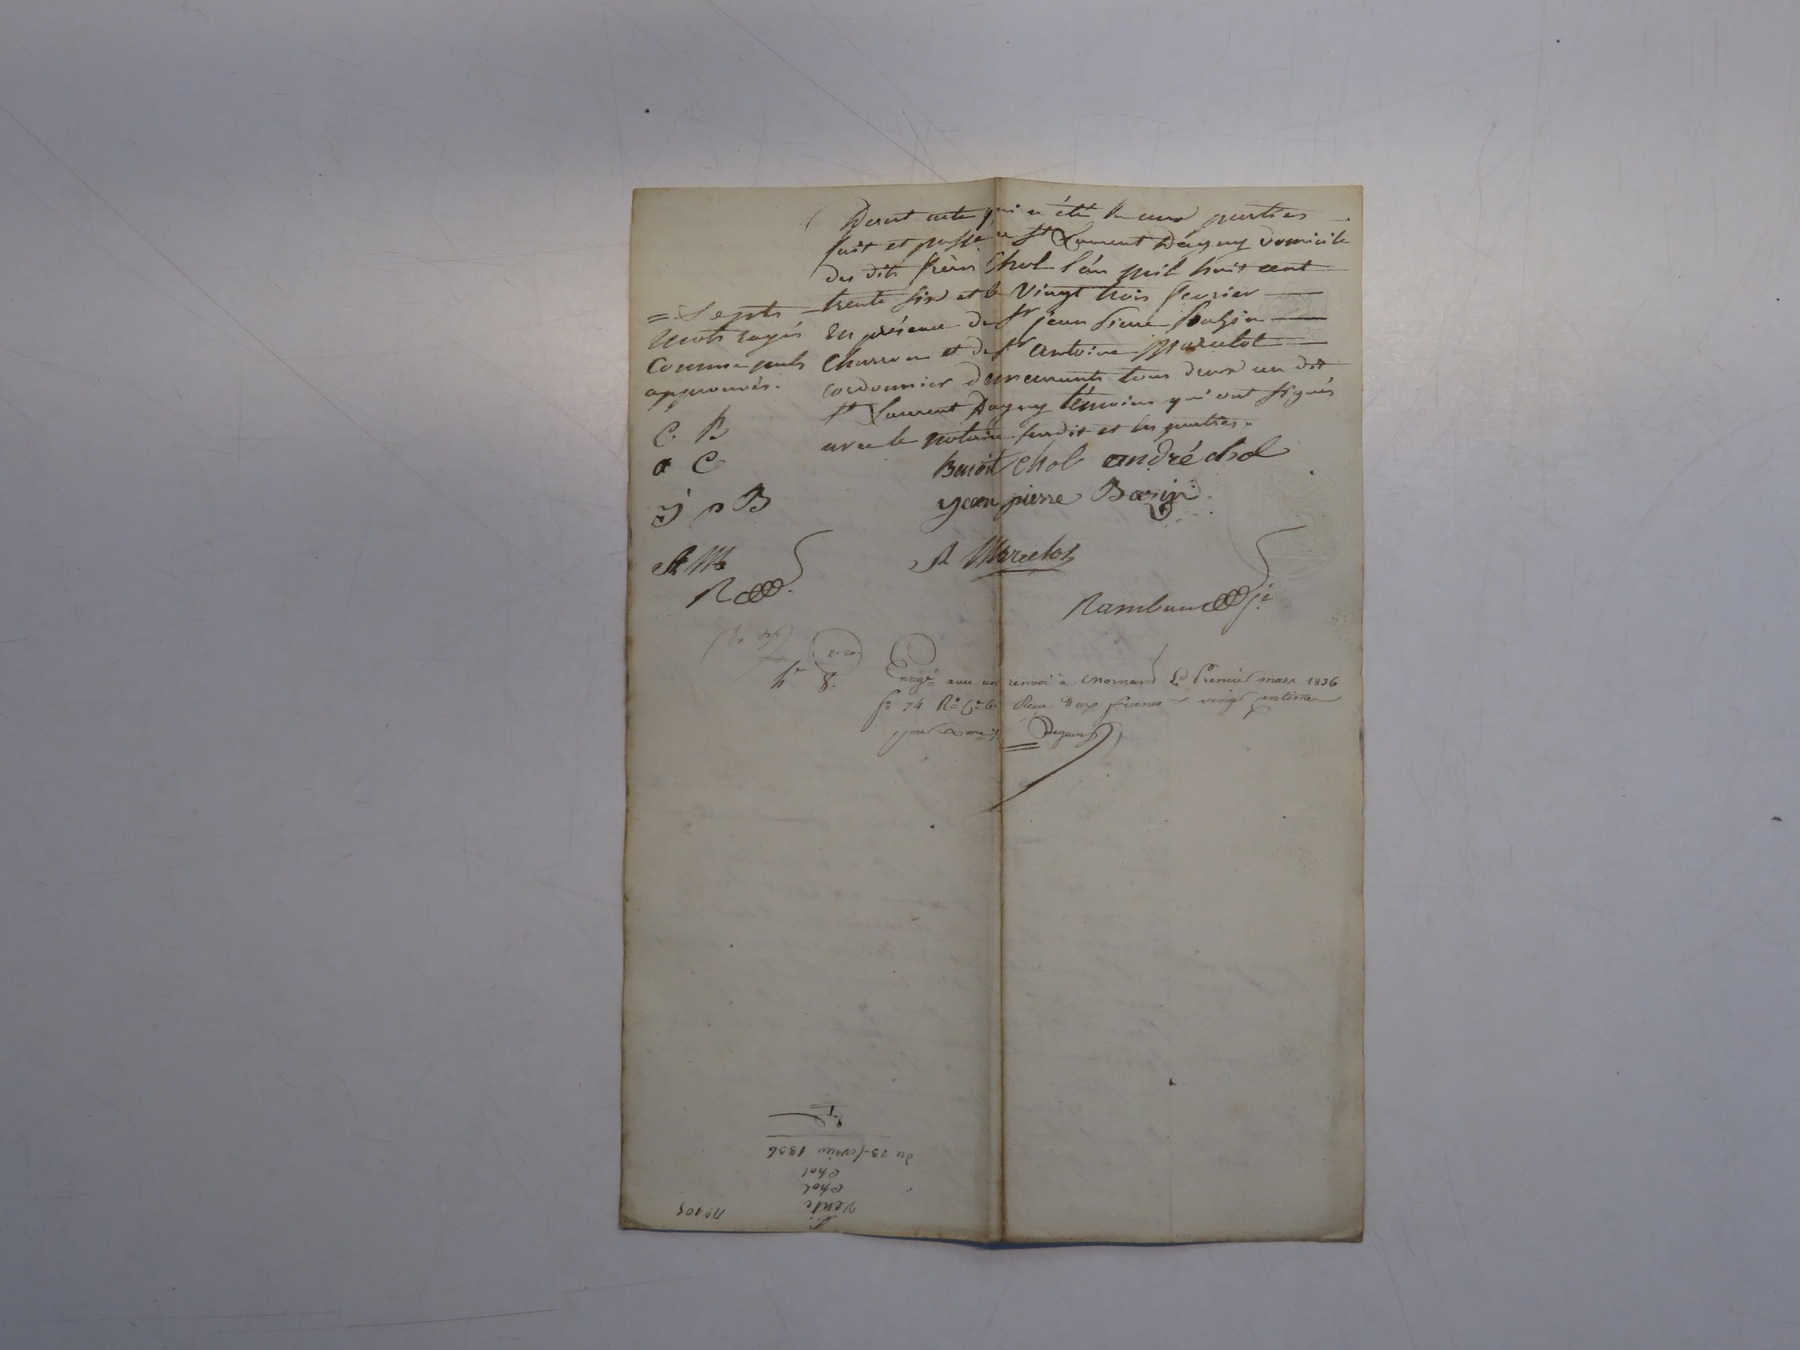 Dont acte qui a été lu aux parties
fait et passé a St Laurent Dagny domicile
des dits frères Chol l'an mil huit cent
trente six et le vingt trois fevrier
En présence de Sr jean pierre Bazin
Charron et de Sr antoine Marclot
cordonnier demeurants tous deux au dit
St Laurent Dagny témoins qui ont signés
avec le notaire susdit et les parties.
= Septs
mots rayés
comme nuls
approuvés.
C. B
a C
j p B
A M
R
Benoit Chol andré chol
jean pierre Bazin
A Marclot
Rambaud
Enregé avec un renvoi à Mornant Le Premier mars 1836
fo 74 Ro Ce 6. Reçu deux francs & vingt centimes
pour
No 105
Vente
Chol
Chol
du 23 fevrier 1836